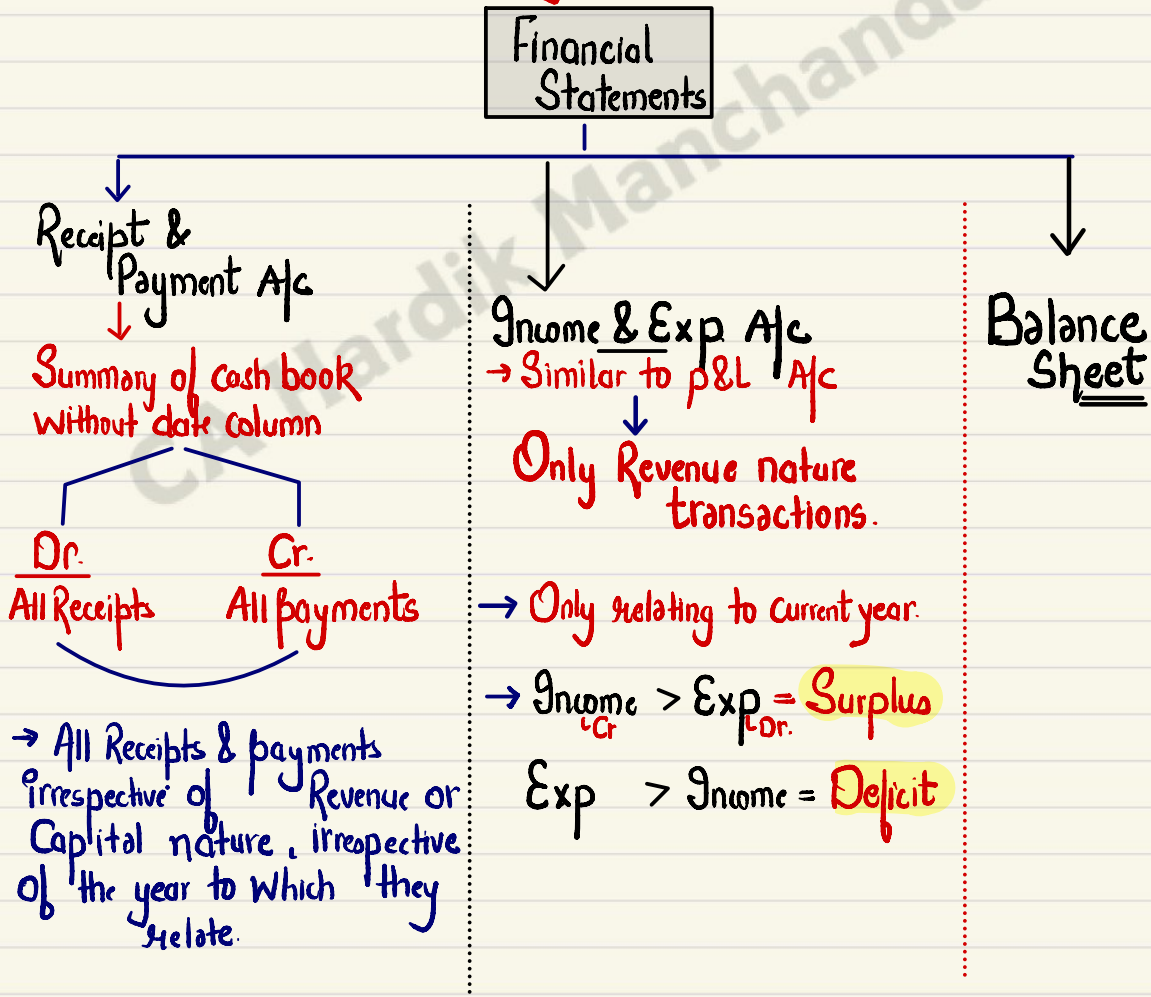 Financial
Statements
CA Hardik Manchanda
Receipt &
Payment A/c
Summary of cash book
without date column
Dr.
All Receipts
Cr.
All payments
→ All Receipts & payments
irrespective of Revenue or
Capital nature, irrespective
of the year to which they
relate.
Income & Exp A/c
→ Similar to P&L A/c
Only Revenue nature
transactions.
→ Only relating to current year.
→ Income > Exp = Surplus
Cr Dr.
Exp > Income = Deficit
Balance
Sheet